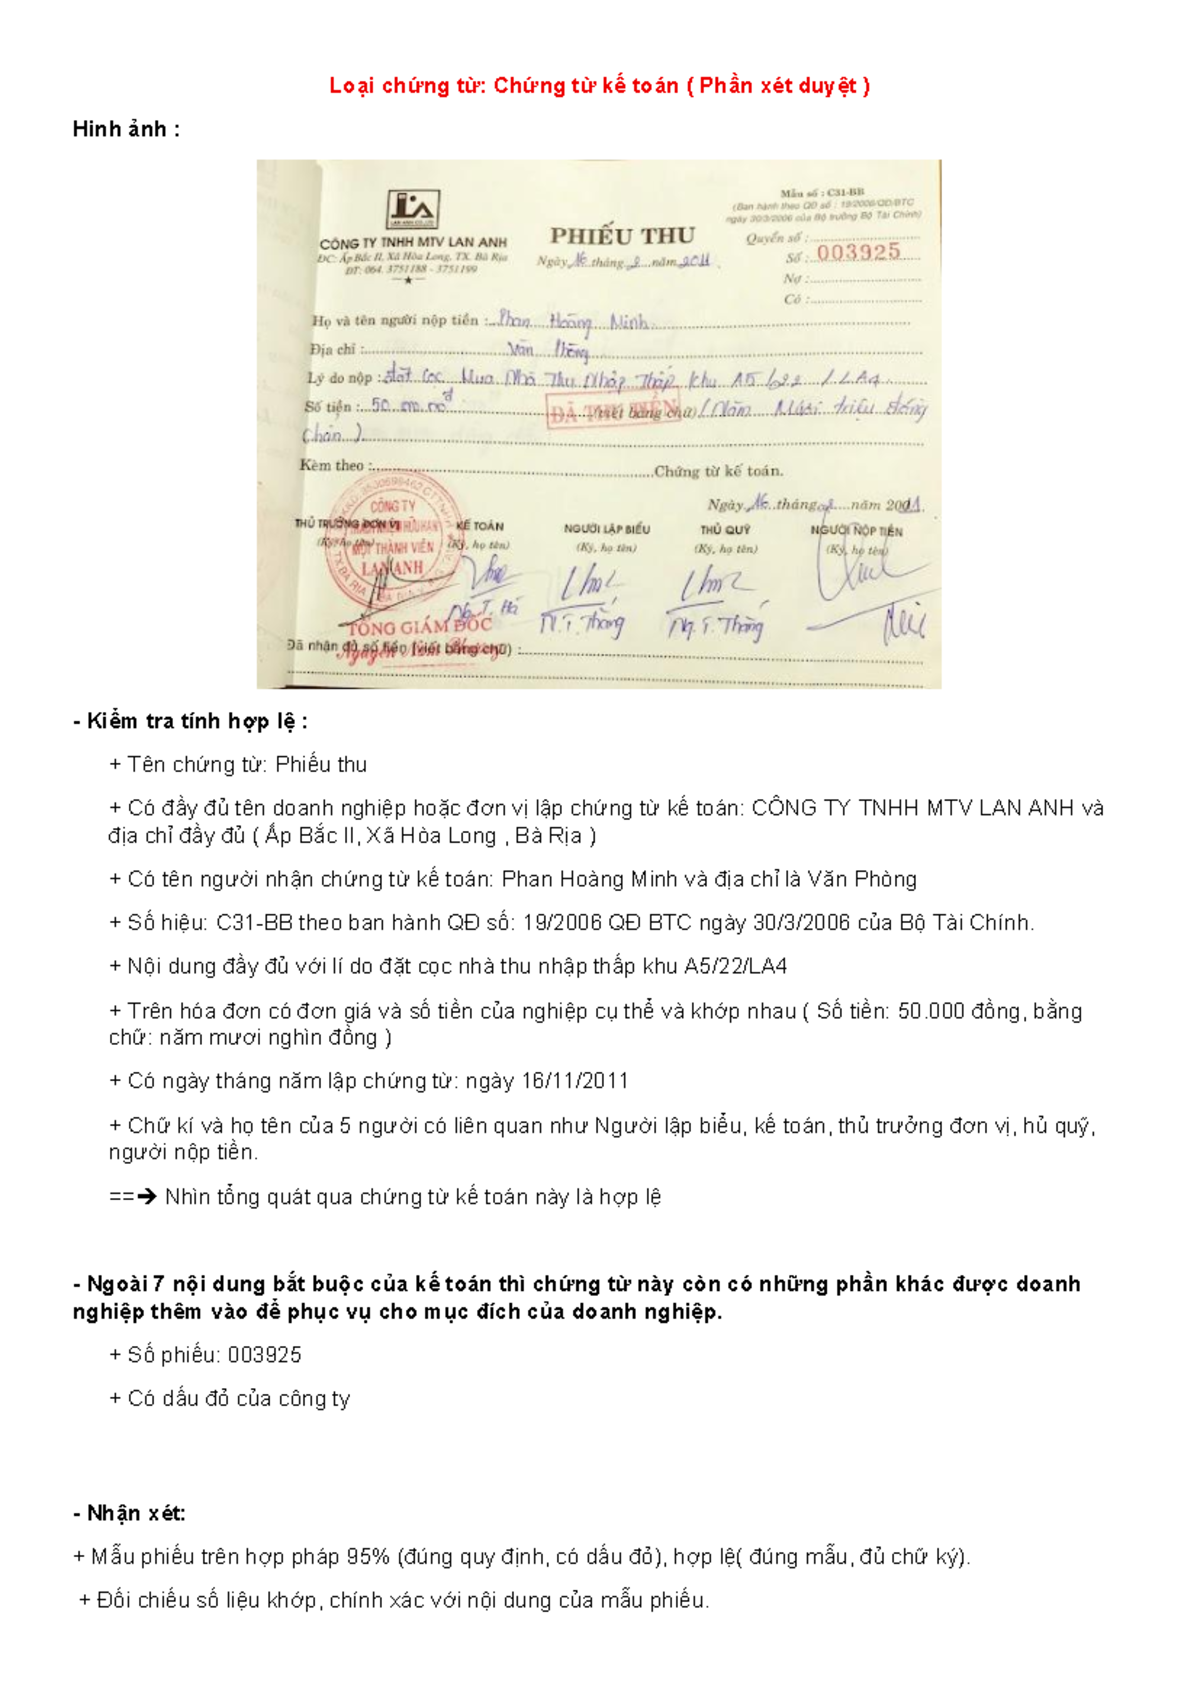 Loại chứng từ: Chứng từ kế toán ( Phần xét duyệt )
Hình ảnh :
LA
CÔNG TY TNHH MTV LAN ANH
ĐC: Ấp Bắc II, Xã Hòa Long, TX. Bà Rịa
ĐT: 064. 3751188 - 3751199
PHIẾU THU
Ngày 16 tháng 2 năm 2011
Mẫu số : C31-BB
(Ban hành theo QĐ số : 19/2006/QĐ/BTC
ngày 30/3/2006 của Bộ trưởng Bộ Tài Chính)
Quyển số :
Số : 003925
Nợ :
Có :
Họ và tên người nộp tiền : Phan Hoàng Minh
Địa chỉ : Văn Phòng
Lý do nộp : Đặt Cọc Mua Nhà Thu Nhập Thấp Khu A5/22 /LA4
Số tiền : 50.000.000đ (viết bằng chữ) (Năm Mươi triệu đồng
ĐÃ THU TIỀN
chẵn)
Kèm theo : Chứng từ kế toán.
Ngày 16 tháng 2 năm 2011
THỦ TRƯỞNG ĐƠN VỊ KẾ TOÁN NGƯỜI LẬP BIỂU THỦ QUỸ NGƯỜI NỘP TIỀN
(Ký, họ tên) (Ký, họ tên) (Ký, họ tên) (Ký, họ tên) (Ký, họ tên)
CÔNG TY
TRÁCH NHIỆM HỮU HẠN
MỘT THÀNH VIÊN
LAN ANH
Ng.T. Hà N.T. Thắng Ng.T. Thắng
TỔNG GIÁM ĐỐC
Đã nhận đủ số tiền (viết bằng chữ) :
- Kiểm tra tính hợp lệ :
+ Tên chứng từ: Phiếu thu
+ Có đầy đủ tên doanh nghiệp hoặc đơn vị lập chứng từ kế toán: CÔNG TY TNHH MTV LAN ANH và
địa chỉ đầy đủ ( Ấp Bắc II, Xã Hòa Long , Bà Rịa )
+ Có tên người nhận chứng từ kế toán: Phan Hoàng Minh và địa chỉ là Văn Phòng
+ Số hiệu: C31-BB theo ban hành QĐ số: 19/2006 QĐ BTC ngày 30/3/2006 của Bộ Tài Chính.
+ Nội dung đầy đủ với lí do đặt cọc nhà thu nhập thấp khu A5/22/LA4
+ Trên hóa đơn có đơn giá và số tiền của nghiệp cụ thể và khớp nhau ( Số tiền: 50.000 đồng, bằng
chữ: năm mươi nghìn đồng )
+ Có ngày tháng năm lập chứng từ: ngày 16/11/2011
+ Chữ kí và họ tên của 5 người có liên quan như Người lập biểu, kế toán, thủ trưởng đơn vị, hủ quỹ,
người nộp tiền.
==➔ Nhìn tổng quát qua chứng từ kế toán này là hợp lệ
- Ngoài 7 nội dung bắt buộc của kế toán thì chứng từ này còn có những phần khác được doanh
nghiệp thêm vào để phục vụ cho mục đích của doanh nghiệp.
+ Số phiếu: 003925
+ Có dấu đỏ của công ty
- Nhận xét:
+ Mẫu phiếu trên hợp pháp 95% (đúng quy định, có dấu đỏ), hợp lệ( đúng mẫu, đủ chữ ký).
+ Đối chiếu số liệu khớp, chính xác với nội dung của mẫu phiếu.